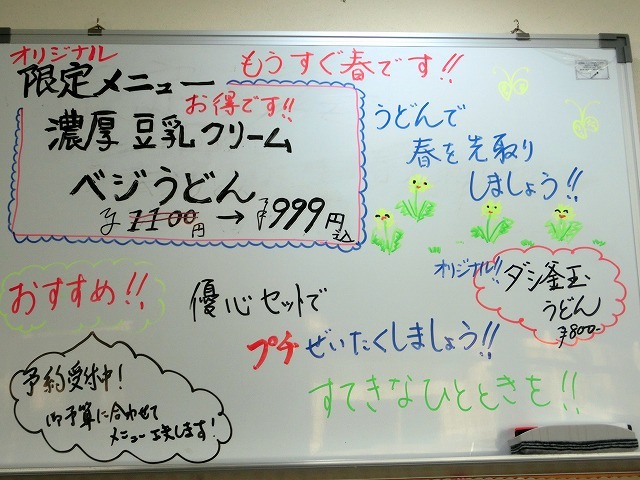 オリジナル
限定メニュー
お得です!!
濃厚 豆乳クリーム
ベジうどん
¥1100円→¥999円込
もうすぐ春です!!
うどんで
春を先取り
しましょう!!
オリジナル!!
ダシ釜玉
うどん
¥800-
おすすめ!!
優心セットで
プチぜいたくしましょう!!
すてきなひとときを!!
予約受付中!
御予算に合わせて
メニュー工夫します!